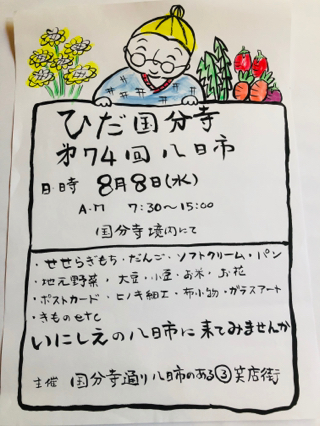 ひだ国分寺
第74回 八日市
日時 8月8日(水)
A.M 7:30～15:00
国分寺境内にて
・せせらぎもち・だんご・ソフトクリーム・パン
・地元野菜・大豆・小豆・お米・お花
・ポストカード・ヒノキ細工・布小物・ガラスアート
・きものetc
いにしえの八日市に来てみませんか
主催 国分寺通り 八日市のある③笑店街